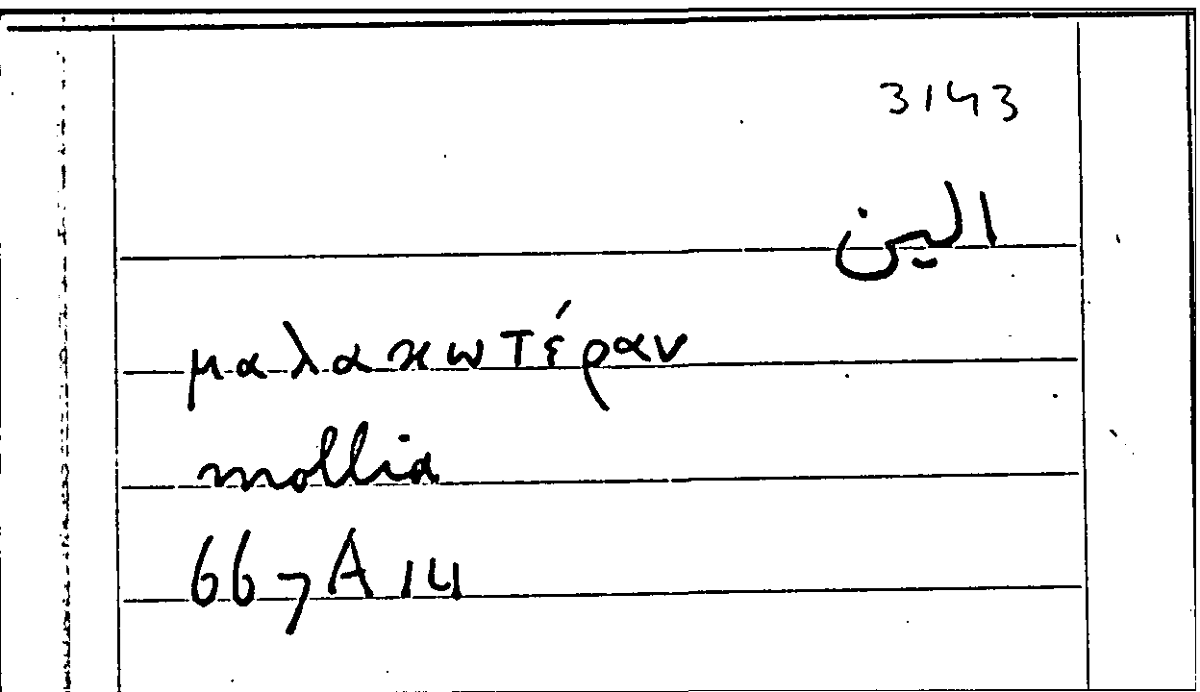 3143
الين
μαλακωτέραν
mollia
667A14